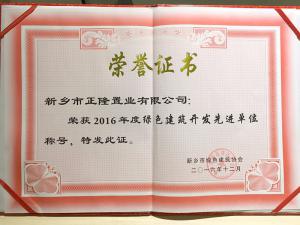 荣誉证书
新乡市正隆置业有限公司:
荣获2016年度绿色建筑开发先进单位
称号，特发此证。
新乡市绿色建筑协会
二〇一六年十二月